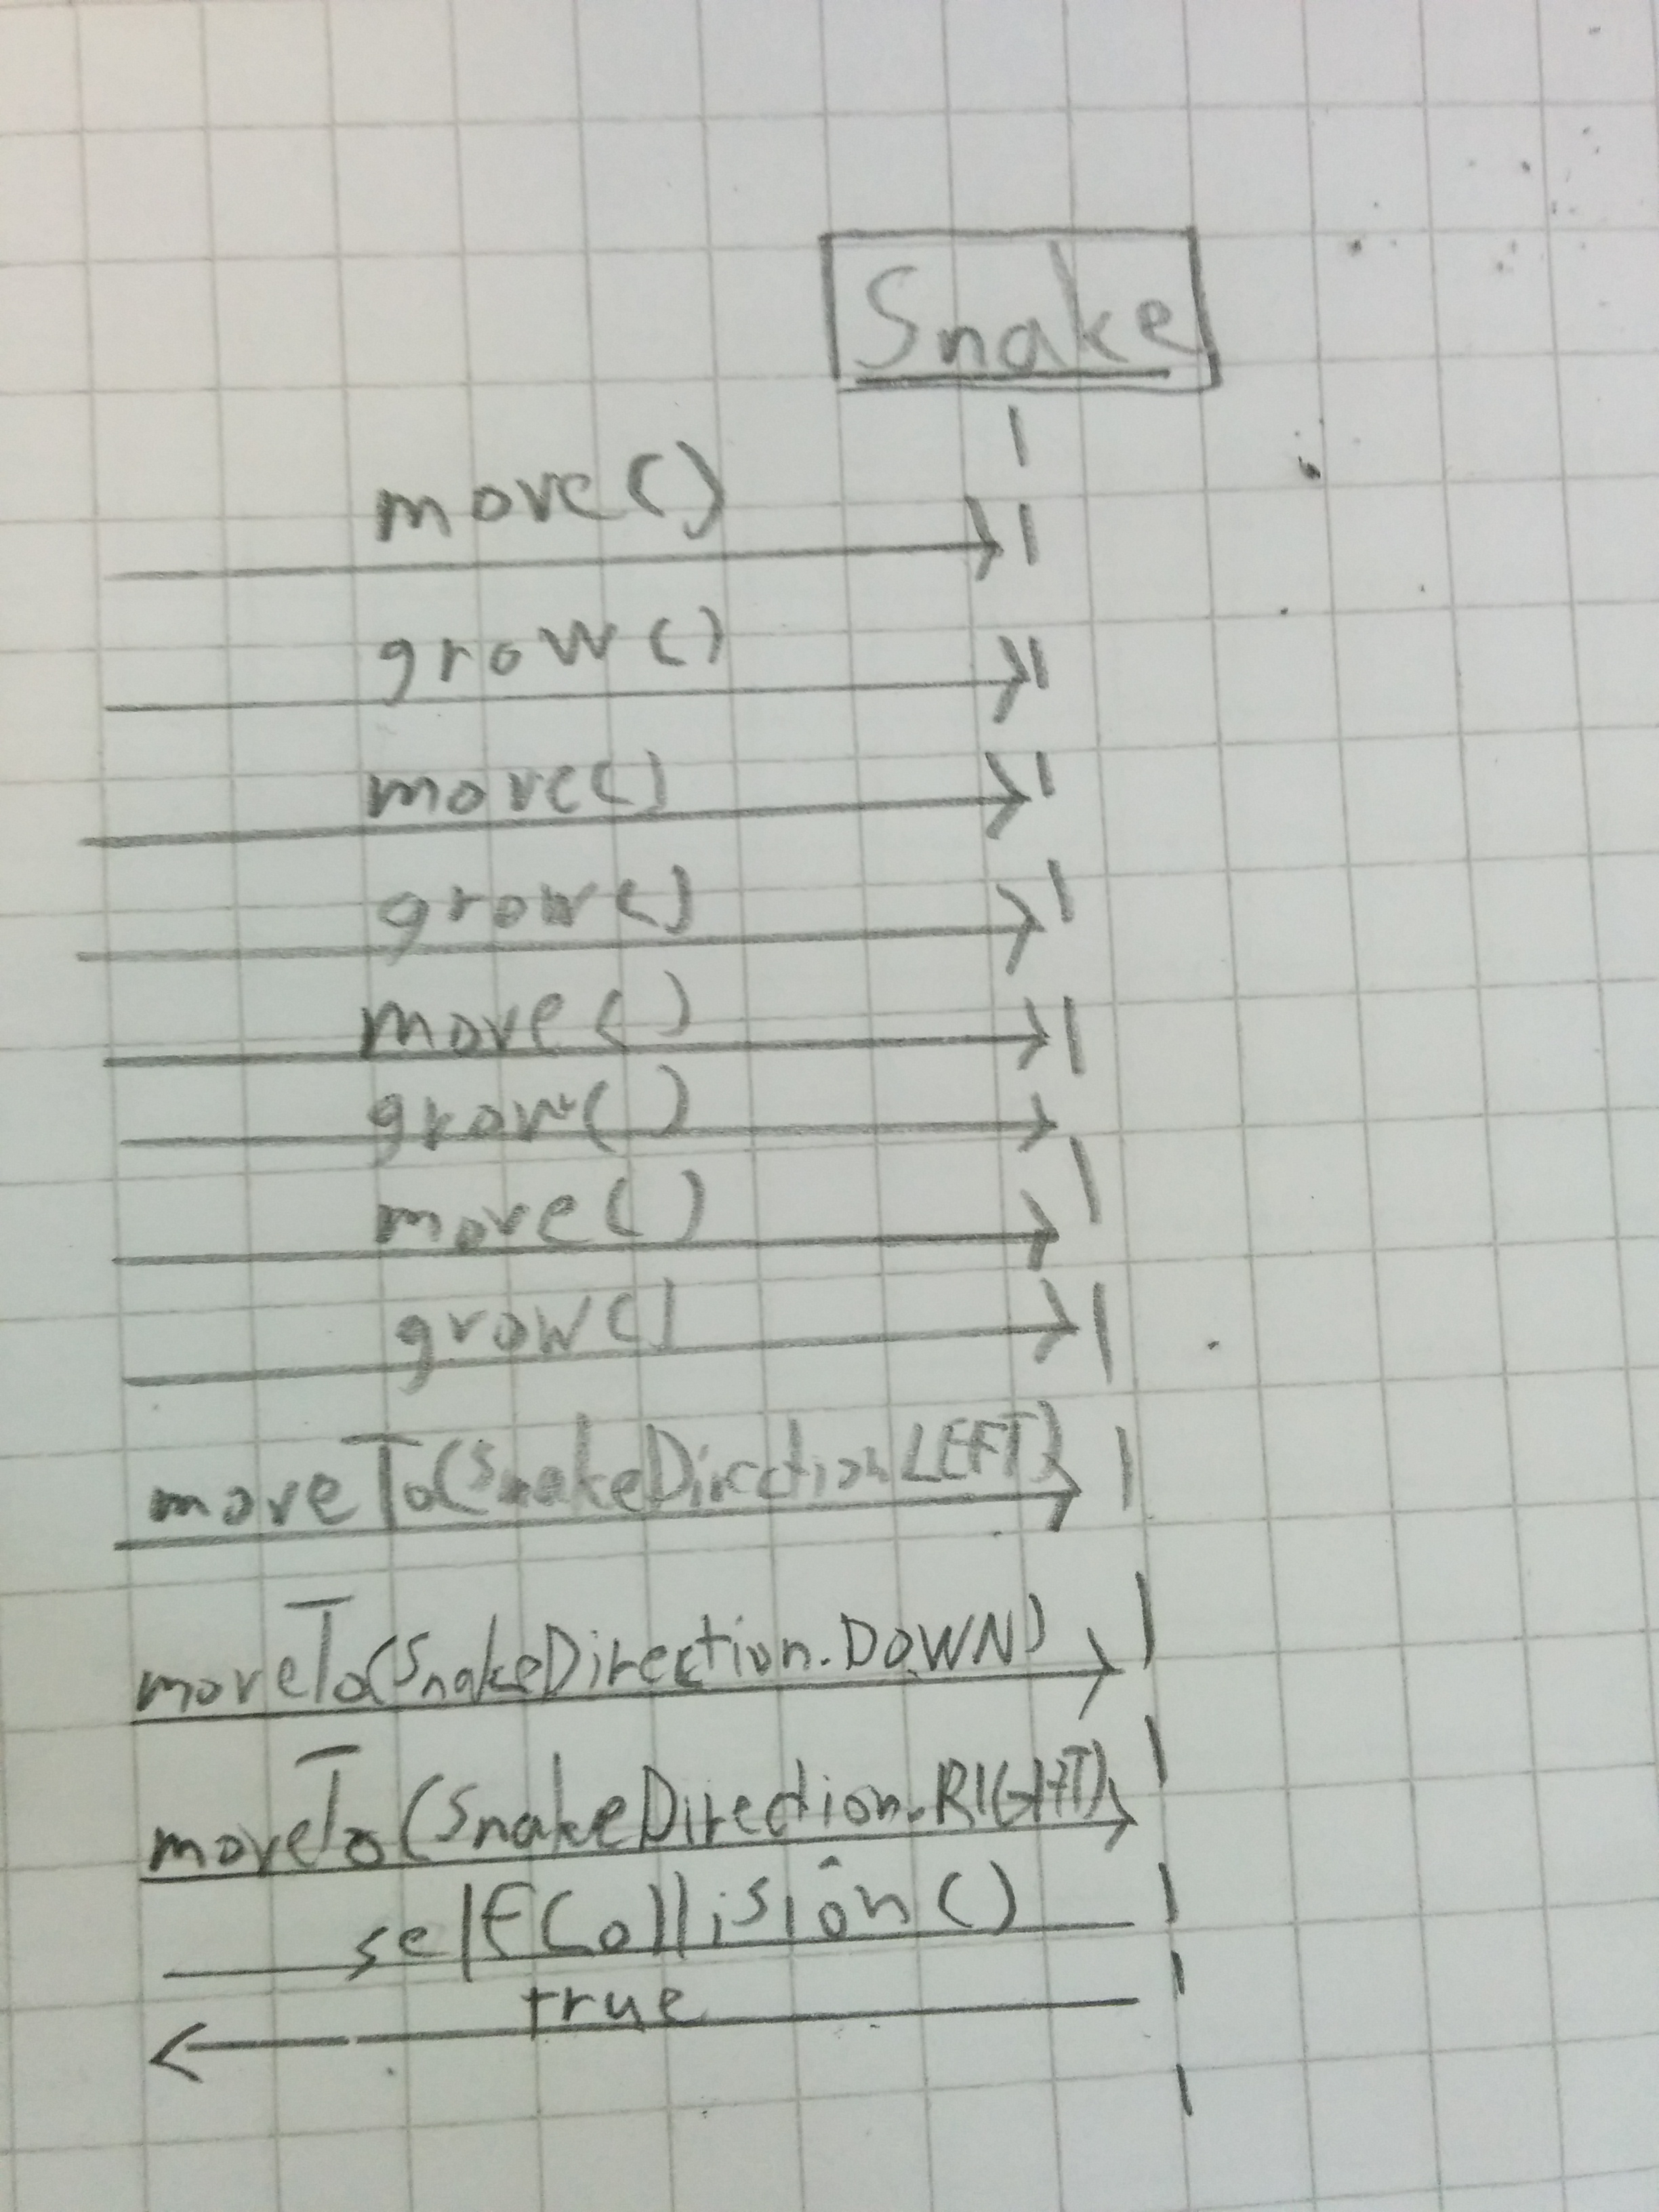 Snake
move()
grow()
move()
grow()
move()
grow()
move()
grow()
moveTo(SnakeDirection.LEFT)
moveTo(SnakeDirection.DOWN)
moveTo(SnakeDirection.RIGHT)
selfCollision()
true